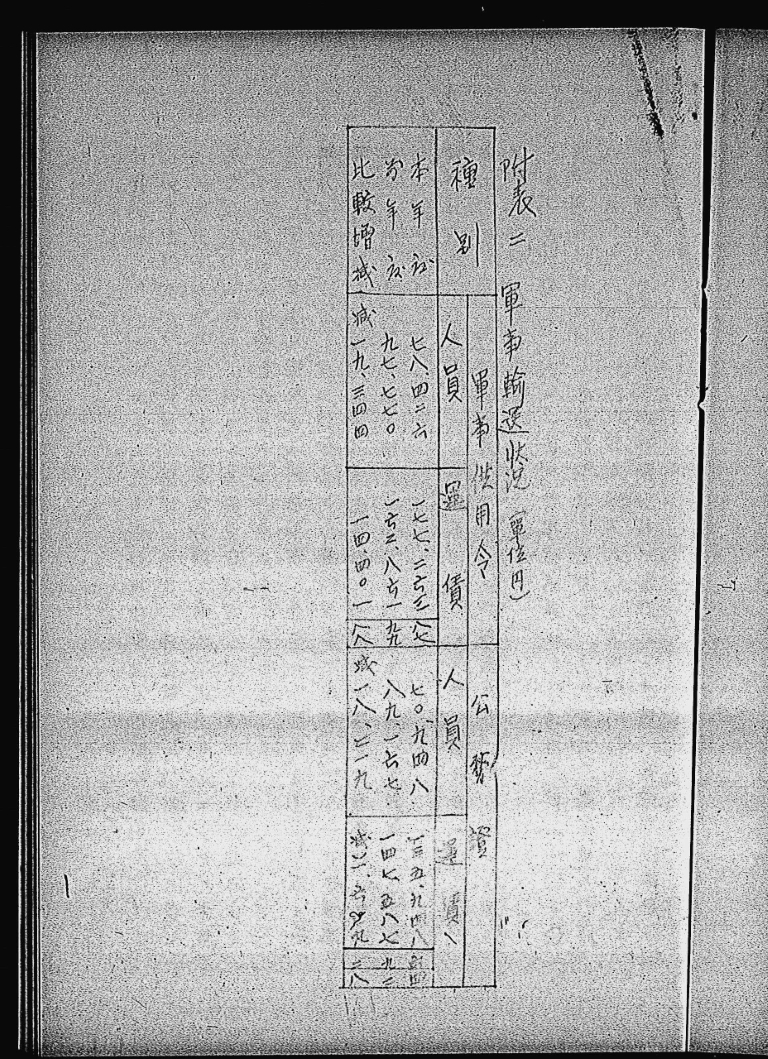 附表二 軍事輸送状況 (單位円)
種別 軍事供用令 公務
人員 運賃 人員 運賃
本年 七八、四二六 一七七、二六三 八七 七〇、九四八 一三五、九四八
年 九七、七七〇 一六二、八六一 九九 八九、一六七 一四七、五八七 九二
比較増減 減一九、三四四 一四、四〇一 八八 減一八、二一九 減一